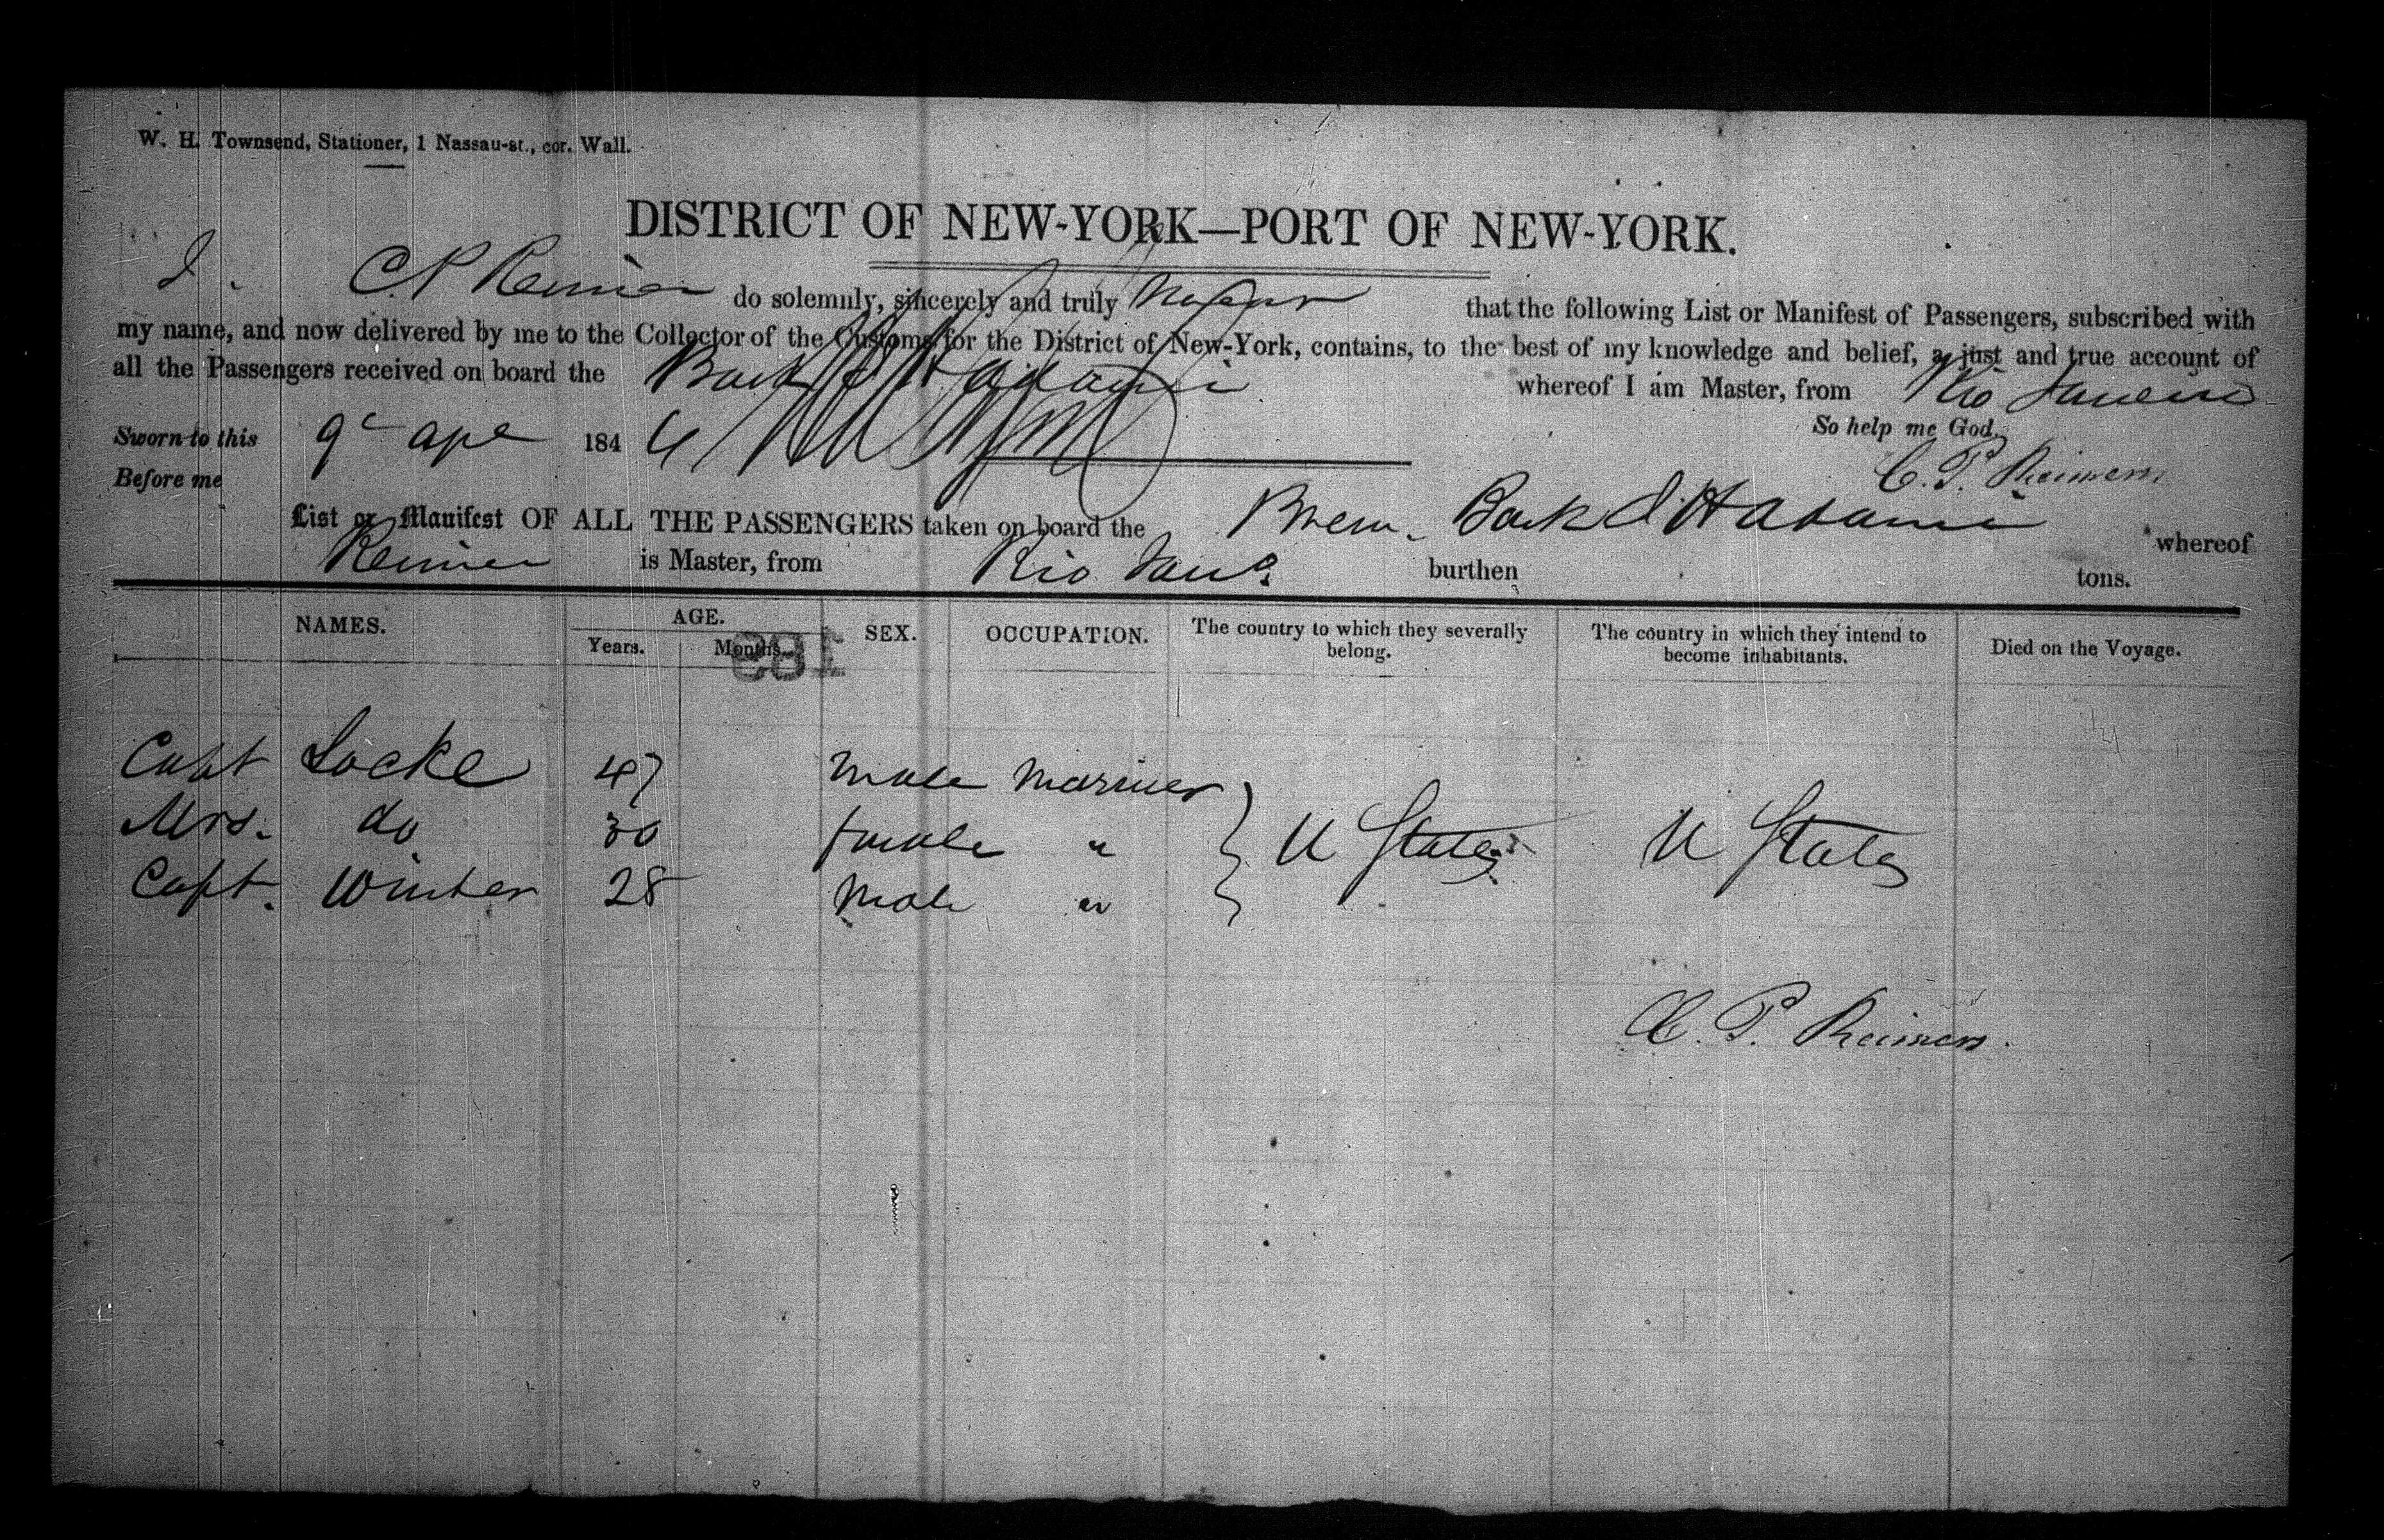 W. H. Townsend, Stationer, 1 Nassau-st., cor. Wall.
DISTRICT OF NEW-YORK—PORT OF NEW-YORK.
I. C. P. Reimer do solemnly, sincerely and truly that the following List or Manifest of Passengers, subscribed with
my name, and now delivered by me to the Collector of the Customs for the District of New-York, contains, to the best of my knowledge and belief, a just and true account of
all the Passengers received on board the Bark whereof I am Master, from Rio Janeiro
So help me God.
Sworn to this 9 apl 1846
C. P. Reimers.
Before me
List or Manifest OF ALL THE PASSENGERS taken on board the Brem. Bark whereof
Reimer is Master, from Rio Jano. burthen tons.
NAMES. AGE. SEX. OCCUPATION. The country to which they severally belong. The country in which they intend to become inhabitants. Died on the Voyage.
Years. Months.
183
Capt Locke 47 male mariner
Mrs. do 30 female " U States U States
Capt. Winter 28 Male "
C. P. Reimers.